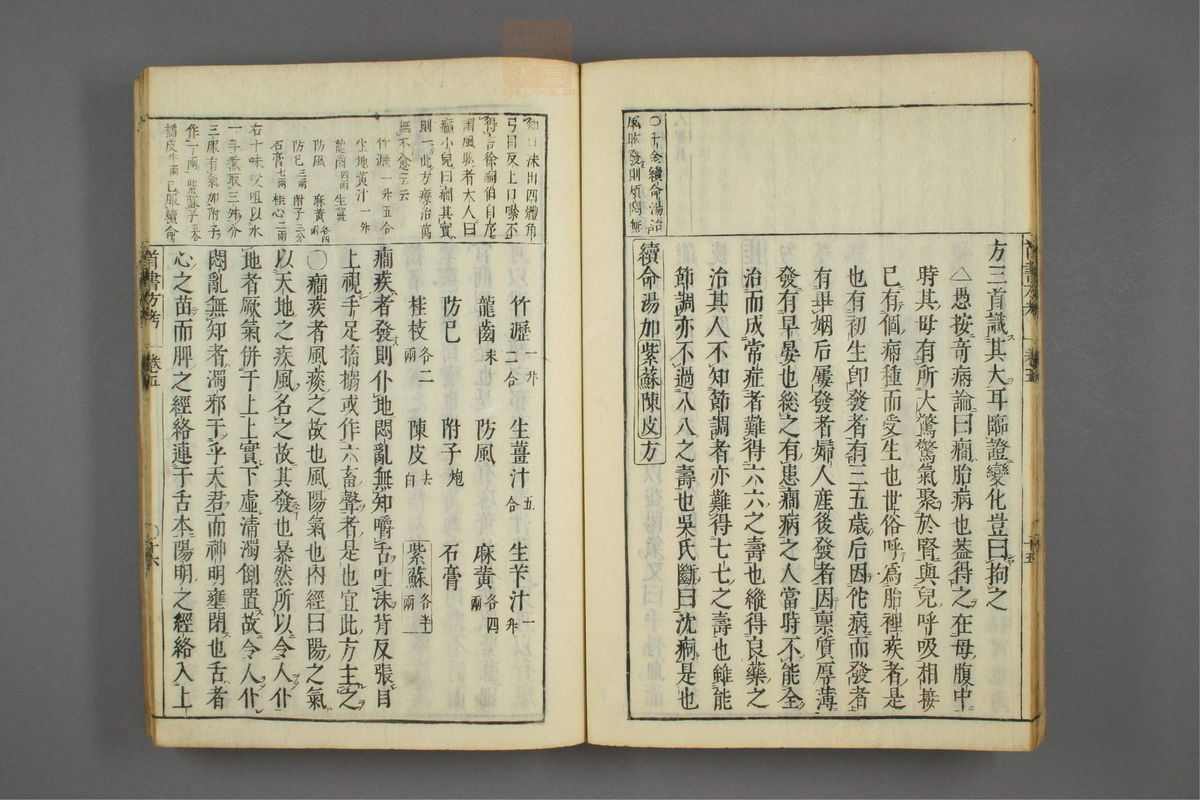 方三首識其大耳臨證變化豈曰拘之
△愚按奇病論曰癎胎病也葢得之在母腹中
時其母有所大驚驚氣聚於腎與兒呼吸相接
已有個病種而受生也世俗呼為胎裡疾者是
也有初生卽發者有三五歲后因佗病而發者
有畢姻后屢發者婦人産後發者因禀質厚薄
發有早晏也総之有患癎病之人當時不能全
治而成常症者難得六六之壽也縱得良藥之
治其人不知節調者亦難得七七之壽也雖能
節調亦不過八八之壽也吳氏斷曰沈痾是也
續命湯加紫蘇陳皮方
○千金續命湯治
風眩發則煩悶無
知口沫出四體角
弓目反上口噤不
得言徐嗣伯自在
謂風眩者大人曰
癲小兒曰癎其實
則一此方療治萬
無不愈云云
竹瀝一升五合
生地黃汁一升
龍齒四兩 生薑
防風 麻黃各四兩
防已三兩 附子三分
石膏七兩 桂心二兩
右十味㕮咀以水
一斗煮取三升分
三服有氣加附子
作一兩 紫蘇子一合
橘皮半兩 已服續命
竹瀝一升二合 生薑汁五合 生芐汁一升
龍齒末 防風 麻黃各四兩
防已 附子炮 石膏
桂枝各二兩 陳皮去白 紫蘇各半兩
癎疾者發則仆地悶亂無知嚼舌吐沫背反張目
上視手足搐搦或作六畜聲者是也宜此方主之
○癎疾者風痰之故也風陽氣也內經曰陽之氣
以天地之疾風名之故其發也暴然所以令人仆
地者厥氣併于上上實下虛清濁倒置故令人仆
悶亂無知者濁邪干乎天君而神明壅閉也舌者
心之苗而脾之經絡連于舌本陽明之經絡入上
首書方考 卷五 ○十六
卷五 十五